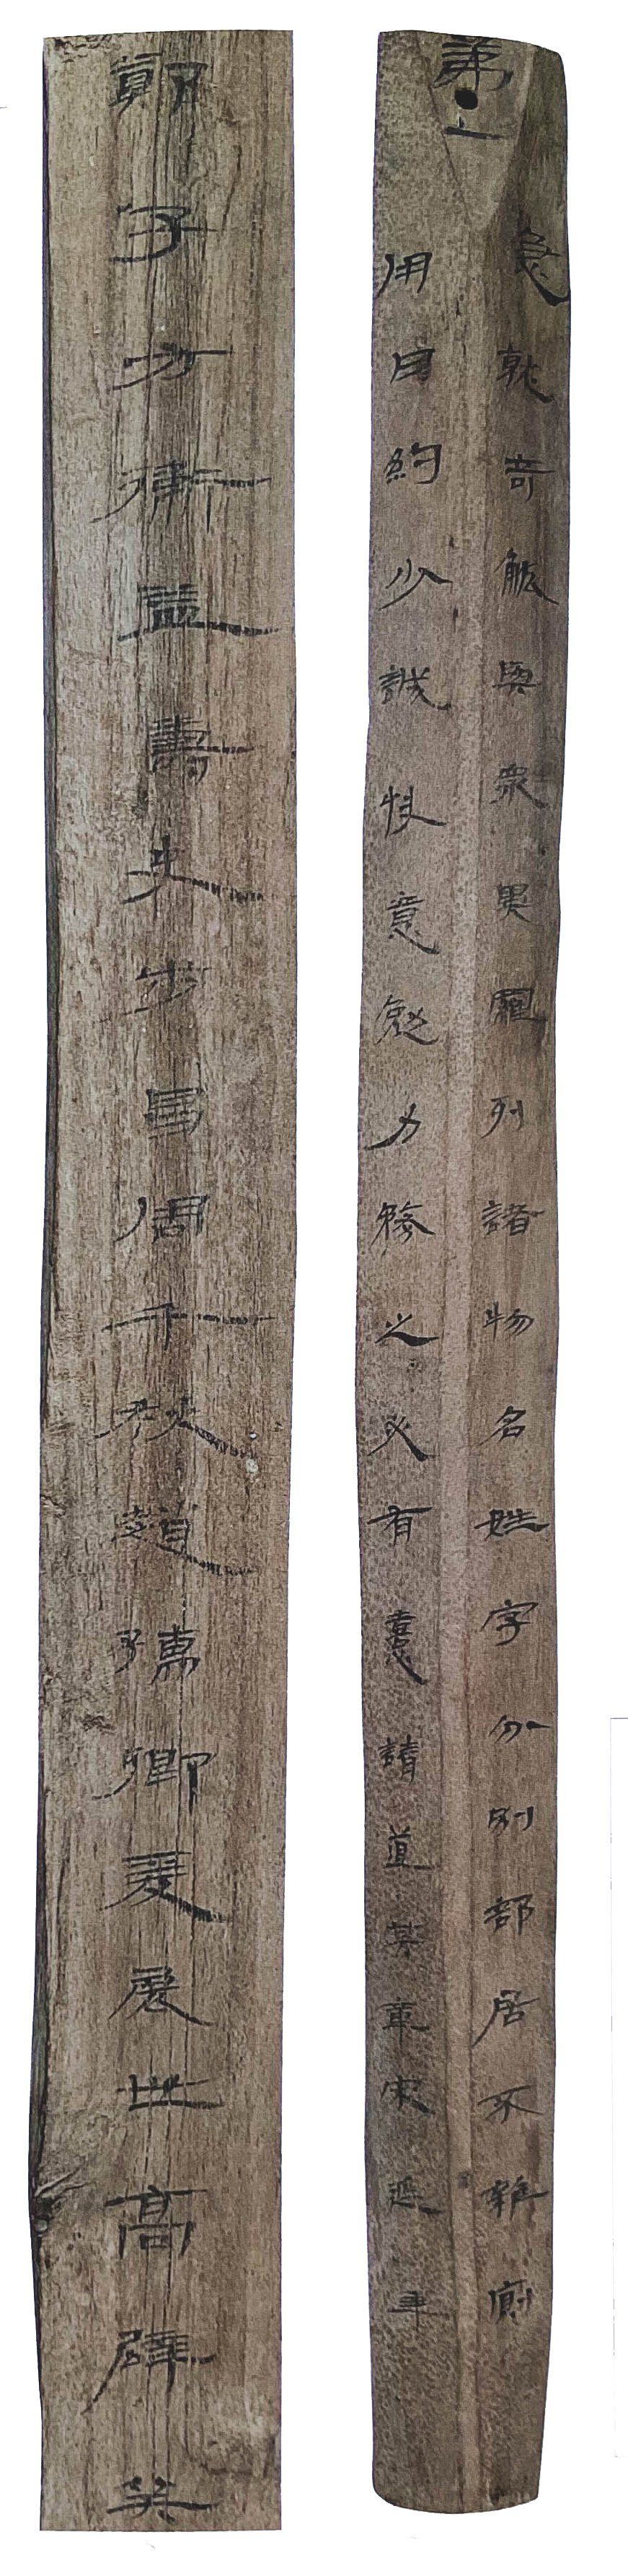 弟●一
急就奇觚與衆異羅列諸物名姓字分別部居不雜廁
用日約少誠快意勉力務之必有憙請道其章宋延年
鄭子方衛益壽史步昌周千秋趙孺卿爰展世高辟兵